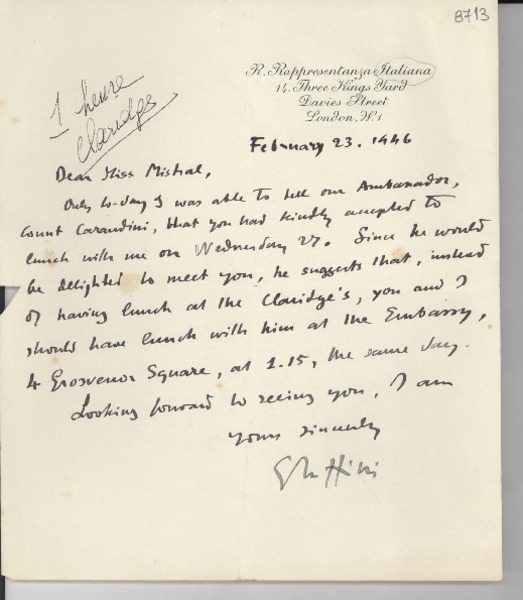 8713
R. Rappresentanza Italiana
14, Three Kings Yard
Davies Street
London. W.1
1 heure
Claridge
February 23. 1946
Dear Miss Mistral,
Only to-day I was able to tell our Ambassador,
Count Carandini, that you had kindly accepted to
lunch with me on Wednesday 27. Since he would
be delighted to meet you, he suggests that, instead
of having lunch at the Claridge's, you and I
should have lunch with him at the Embassy,
4 Grosvenor Square, at 1.15, the same day.
Looking forward to seeing you, I am
yours sincerely